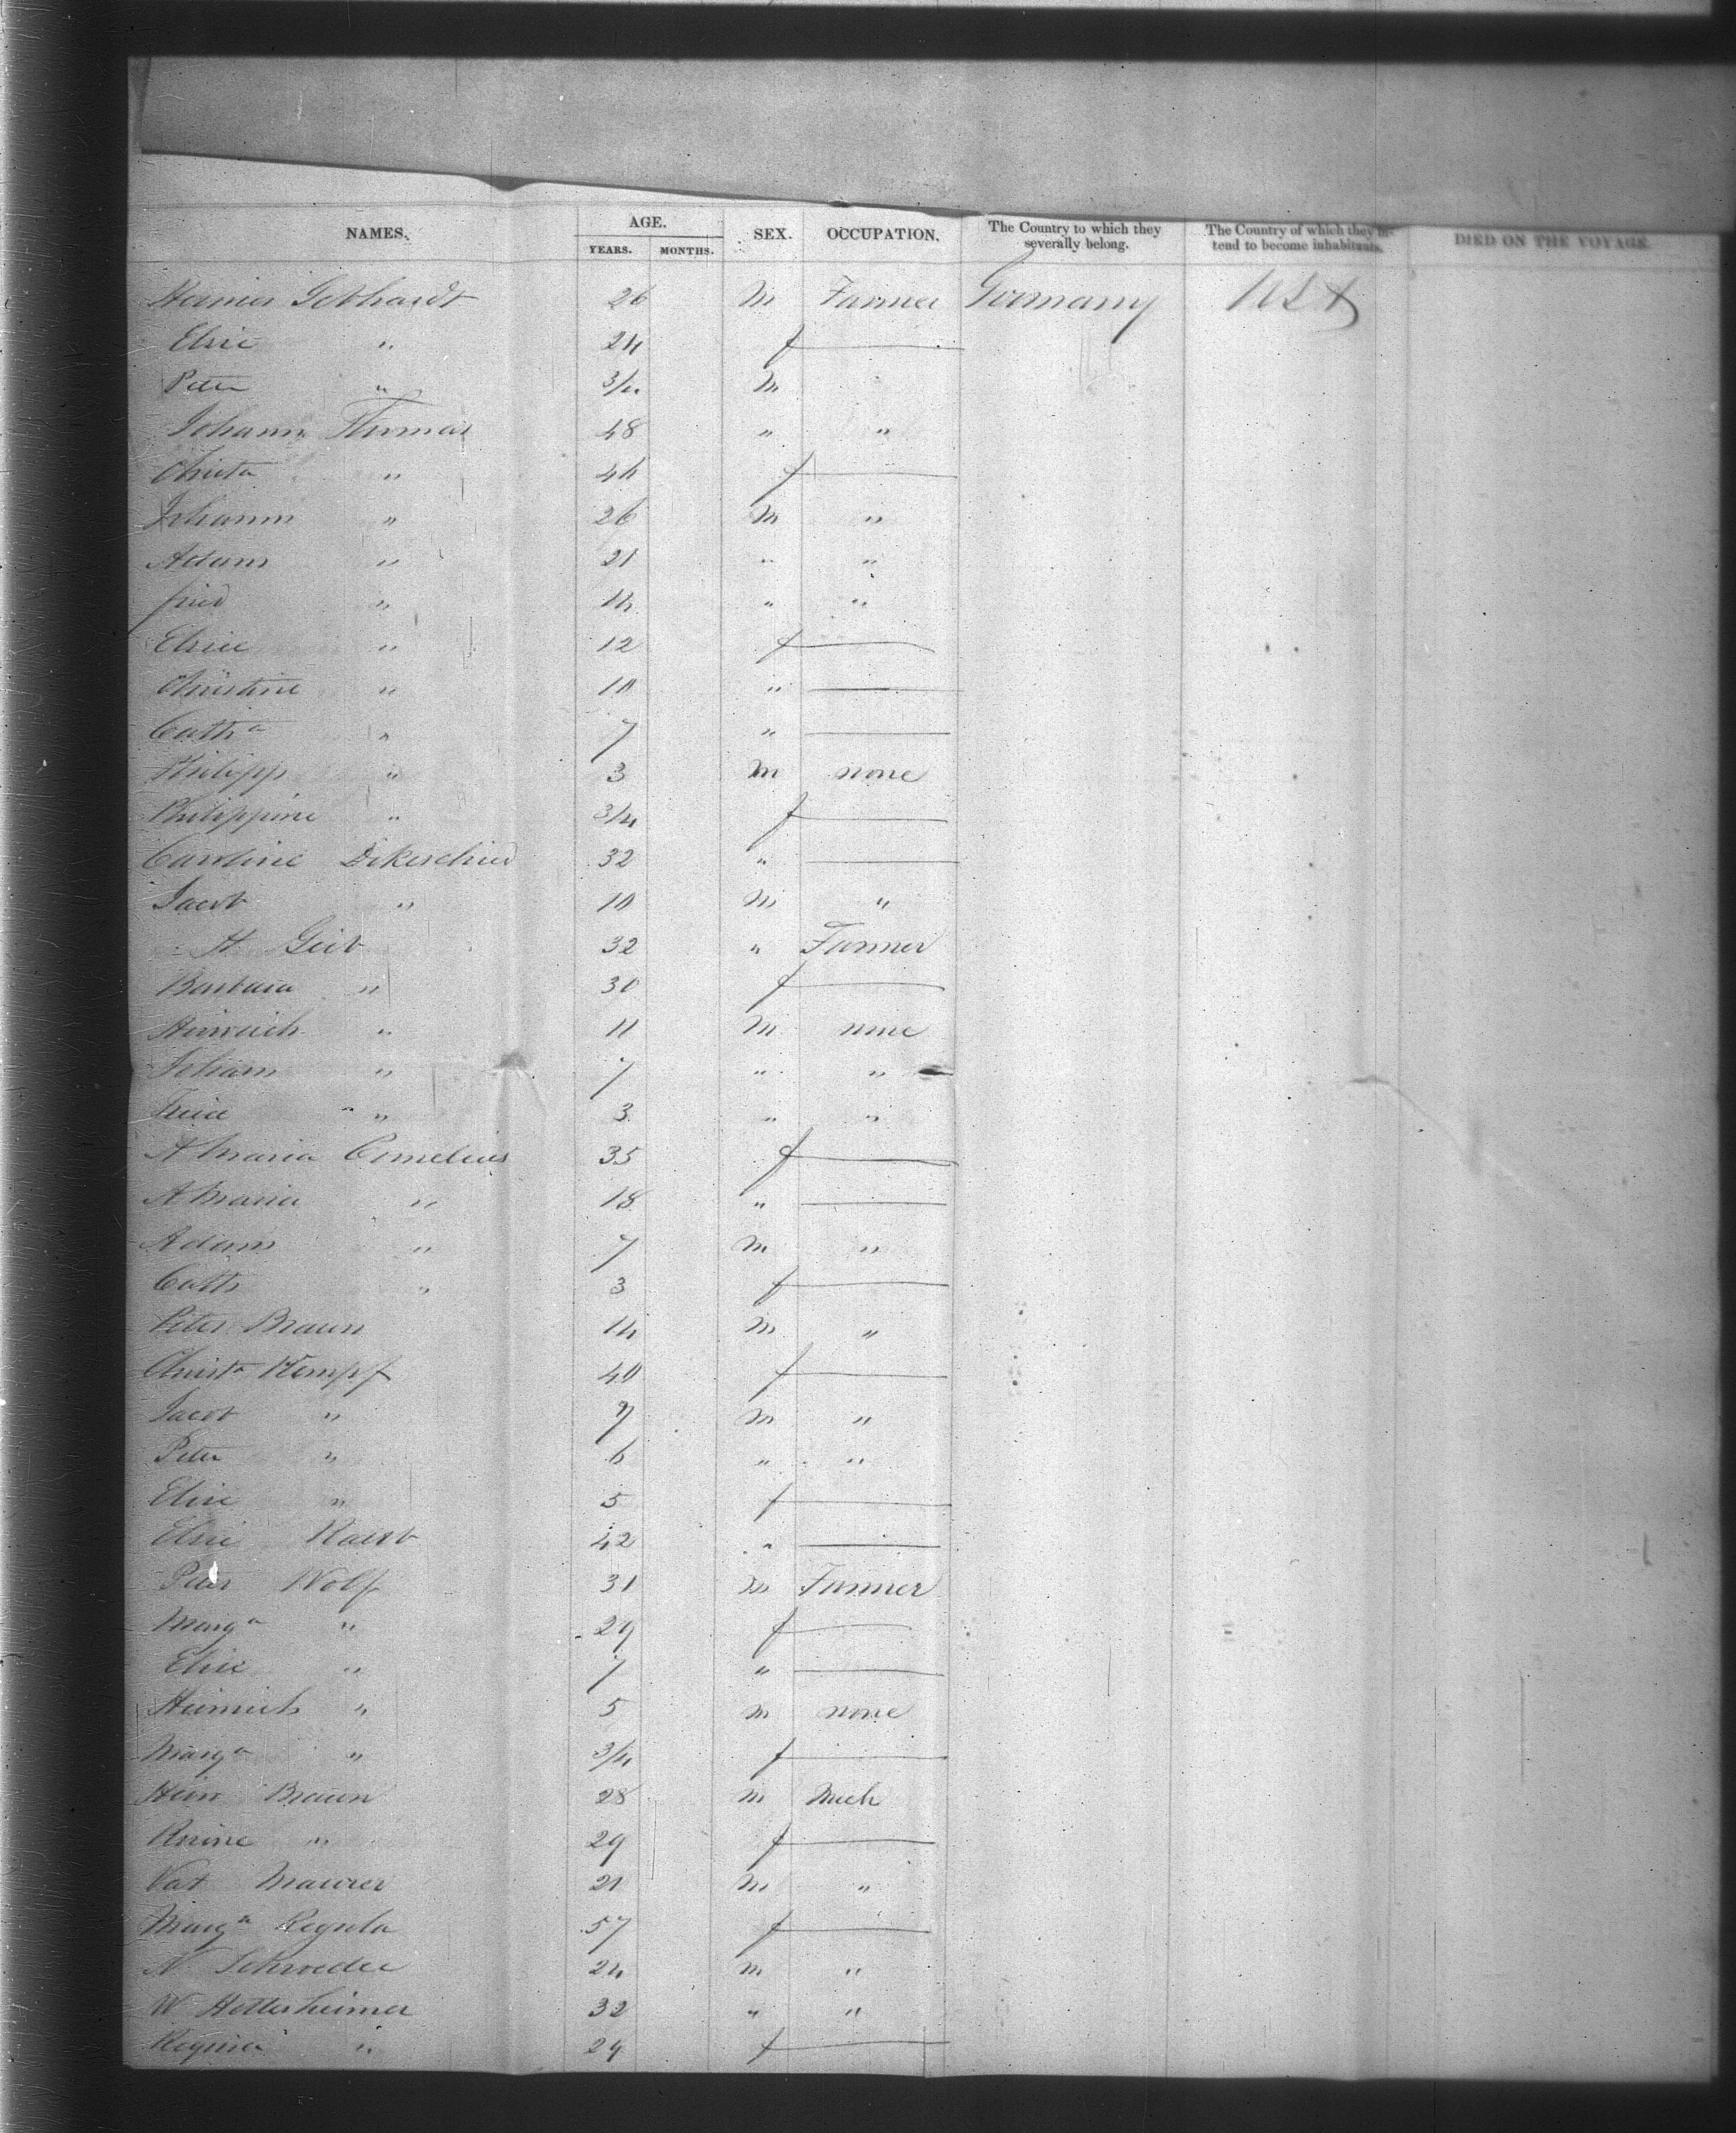 NAMES. AGE. SEX. OCCUPATION. The Country to which they severally belong. The Country of which they intend to become inhabitants. DIED ON THE VOYAGE
YEARS. MONTHS.
Gebhardt 26 M Farmer Germany USA
Elise " 24 f
Peter " 3/4 M
Johann Thomas 48 " "
Christa " 44 f
Johann " 26 M "
Adam " 21 " "
fried " 14 " "
Elise " 12 f
Christine " 10 "
Catha " 7 "
Philipp " 3 M none
Philippine " 3/4 f
Caroline Dikerschied 32 "
Jacob " 10 M "
H Geib 32 " Farmer
Barbara " 30 f
Heinrich " 11 M none
Johann " 7 " "
" 3 " "
A Maria Cornelius 35 f
A Maria " 18 "
Adam " 7 M "
Cath " 3 f
Peter Braun 14 M "
Christa Kempf 40 f
Jacob " 9 M "
Peter " 6 " "
Elise " 5 f
Elise 42 "
Peter Wolf 31 M Farmer
Marga " 29 f
Elise " 7 "
Heinrich " 5 M none
Marga " 3/4 f
Hein Braun 28 M Mech
Rosine " 29 f
Vat Maurer 21 M "
Marga Regula 57 f
N Schroeder 24 M "
W Hotterheimer 32 " "
Regina " 29 f